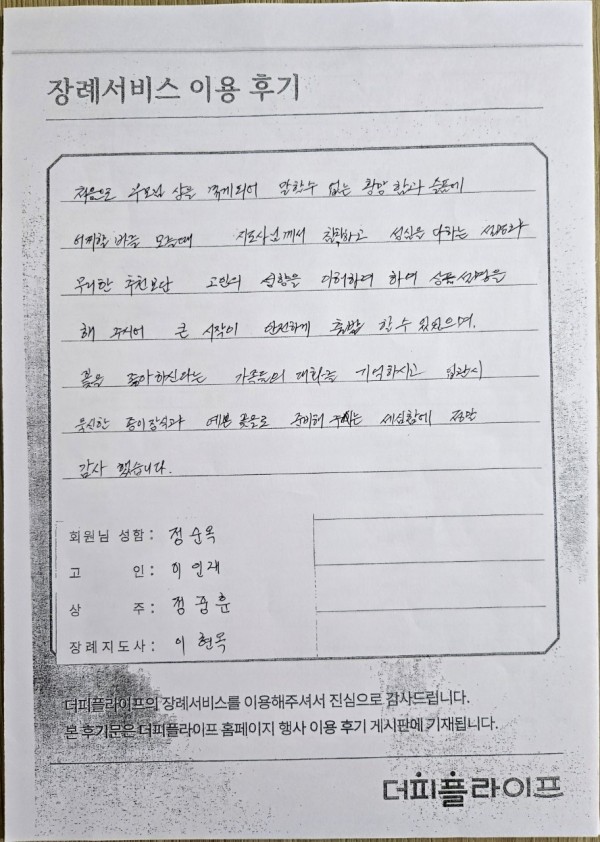 장례서비스 이용 후기
처음으로 부모님 상을 겪게되어 말할수 없는 황망함과 슬픔에
어찌할 바를 모를때 지도사님께서 침착하고 성심을 다하는 설명과
무리한 추천보단 고인의 성향을 더하려 하여 상품설명을
해 주시어 큰 시작이 안전하게 출발 할 수 있었으며,
꽃을 좋아하신다는 가족들의 대화를 기억하시고 입관시
풍성한 종이장식과 예쁜 꽃으로 준비해 주시는 세심함에 정말
감사 했습니다.
회원님 성함 : 정순옥
고 인 : 이인재
상 주 : 정중훈
장례지도사 : 이현목
더피플라이프의 장례서비스를 이용해주셔서 진심으로 감사드립니다.
본 후기문은 더피플라이프 홈페이지 행사 이용 후기 게시판에 기재됩니다.
더피플라이프